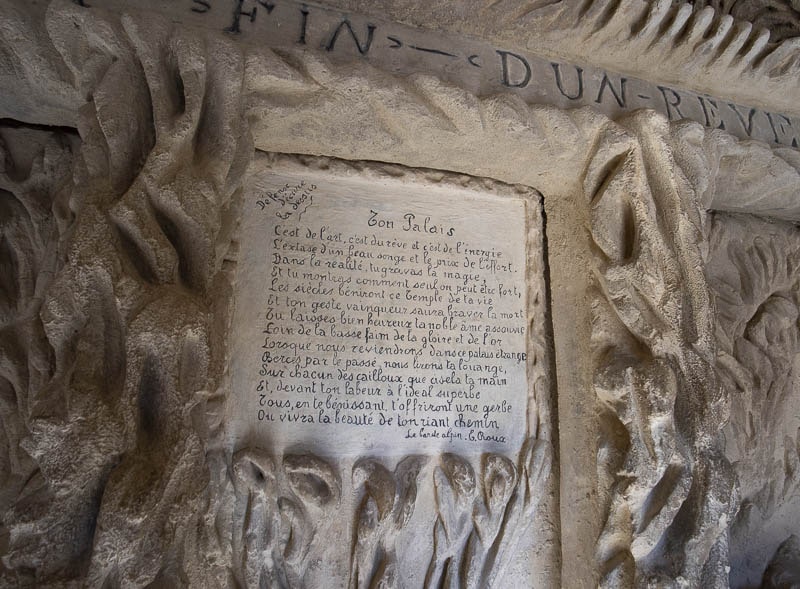 FIN — D'UN-REVE
Défense
d'écrire
là dessus
Ton Palais
C'est de l'art, c'est du rêve et c'est de l'énergie
L'extase d'un beau songe et le prix de l'effort.
Dans la réalité, tu gravas la magie,
Et tu montras comment seul on peut être fort,
Les siècles béniront ce temple de ta vie
Et ton geste vainqueur saura braver la mort
Tu laisses bien heureux ta noble âme assouvie
Loin de la basse faim de la gloire et de l'or
Lorsque nous reviendrons dans ce palais étrange
Bercés par le passé, nous lirons ta louange,
Sur chacun des cailloux que cisela ta main
Et, devant ton labeur à l'idéal superbe
Tous, en te bénissant, t'offriront une gerbe
Où vivra la beauté de ton riant chemin
Le barde alpin. E. Roux